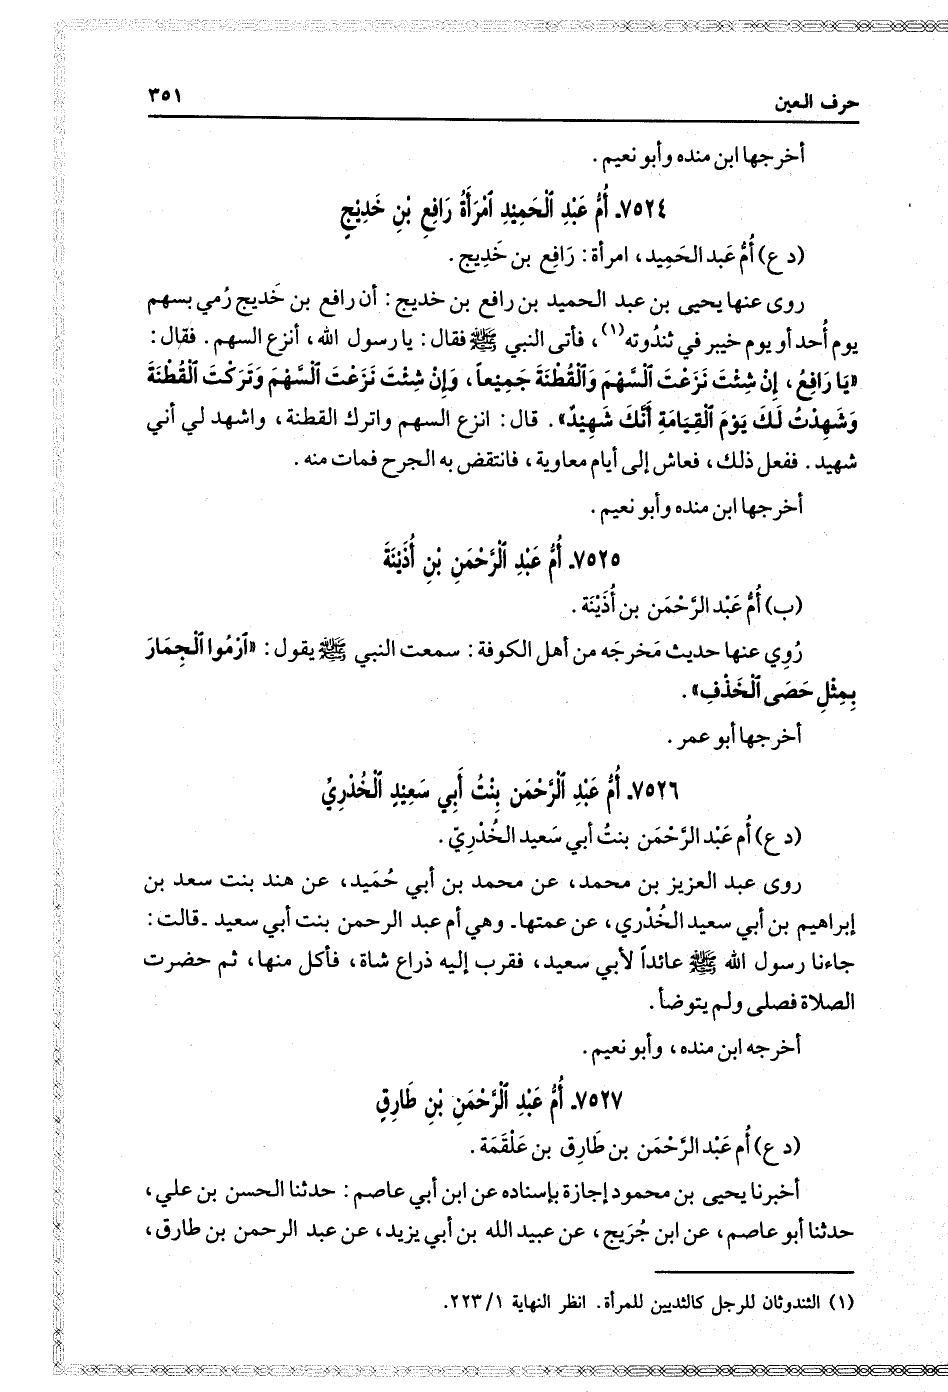 حرف العين ٣٥١
أخرجها ابن منده وأبو نعيم.
٧٥٢٤ـ أُمُّ عَبْدِ ٱلْحَمِيْدِ ٱمْرَأَةُ رَافِعِ بْنِ خَدِيْجٍ
(د ع) أُمُّ عَبد الحَمِيد، امرأة: رَافِع بن خَدِيج.
روى عنها يحيى بن عبد الحميد بن رافع بن خديج: أن رافع بن خَديج رُمي بسهم
يوم أُحد أو يوم خيبر في ثندُوته(١)، فأتى النبي ﷺ فقال: يا رسول الله، أنزع السهم. فقال:
«يَا رَافِعُ، إِنْ شِئْتَ نَزَعْتَ ٱلسَّهْمَ وَٱلْقُطْنَةَ جَمِيْعاً، وَإِنْ شِئْتَ نَزَعْتَ ٱلسَّهْمَ وَتَرَكْتَ ٱلْقُطْنَةَ
وَشَهِدْتُ لَكَ يَوْمَ ٱلْقِيَامَةِ أَنَّكَ شَهِيْدٌ». قال: انزع السهم واترك القطنة، واشهد لي أني
شهيد. ففعل ذلك، فعاش إلى أيام معاوية، فانتقض به الجرح فمات منه.
أخرجها ابن منده وأبو نعيم.
٧٥٢٥ـ أُمُّ عَبْدِ ٱلْرَّحْمَنِ بْنِ أُذَيْنَةَ
(ب) أُمُّ عَبْد الرَّحْمَن بن أُذَيْنَة.
رُوِي عنها حديث مَخرجَه من أهل الكوفة: سمعت النبي ﷺ يقول: «ٱرْمُوا ٱلْجِمَارَ
بِمِثْلِ حَصَى ٱلْخَذْفِ».
أخرجها أبو عمر.
٧٥٢٦ـ أُمُّ عَبْدِ ٱلْرَّحْمَن بِنْتُ أَبِي سَعِيْدٍ ٱلْخُدْرِيُّ
(د ع) أُم عَبْد الرَّحْمَن بنتُ أبي سَعيد الخُدْرِيّ.
روى عبد العزيز بن محمد، عن محمد بن أبي حُمَيد، عن هند بنت سعد بن
إبراهيم بن أبي سعيد الخُدْري، عن عمتها ـ وهي أم عبد الرحمن بنت أبي سعيد ـ قالت:
جاءنا رسول الله ﷺ عائداً لأبي سعيد، فقرب إليه ذراع شاة، فأكل منها، ثم حضرت
الصلاة فصلى ولم يتوضأ.
أخرجه ابن منده، وأبو نعيم.
٧٥٢٧ـ أُمُّ عَبْدِ ٱلْرَّحْمَنِ بْنِ طَارِقٍ
(د ع) أُم عَبْد الرَّحْمَن بن طَارِق بن عَلْقَمَة.
أخبرنا يحيى بن محمود إجازة بإسناده عن ابن أبي عاصم: حدثنا الحسن بن علي،
حدثنا أبو عاصم، عن ابن جُرَيج، عن عبيد الله بن أبي يزيد، عن عبد الرحمن بن طارق،
(١) الثندوثان للرجل كالثديين للمرأة. انظر النهاية ٢٢٣/١.